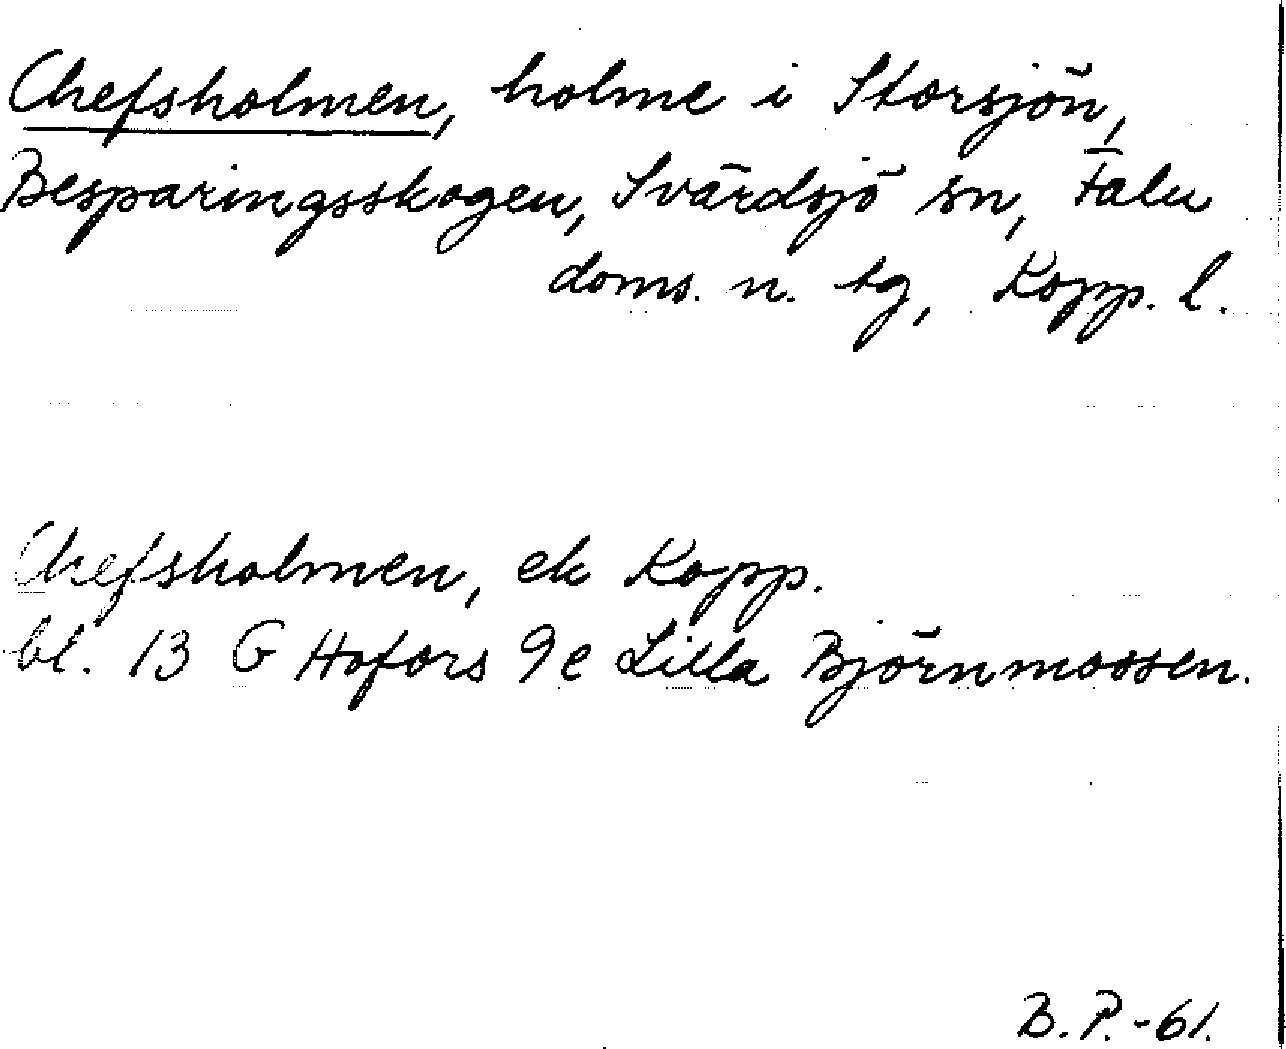 Chefsholmen, holme i Storsjön,
Besparingsskogen, Svärdsjö sn, Falu
doms. n. tg, Kopp. l.
Chefsholmen, ek Kopp.
bl. 13 G Hofors 9e Lilla Björnmossen.
B. P. -61.